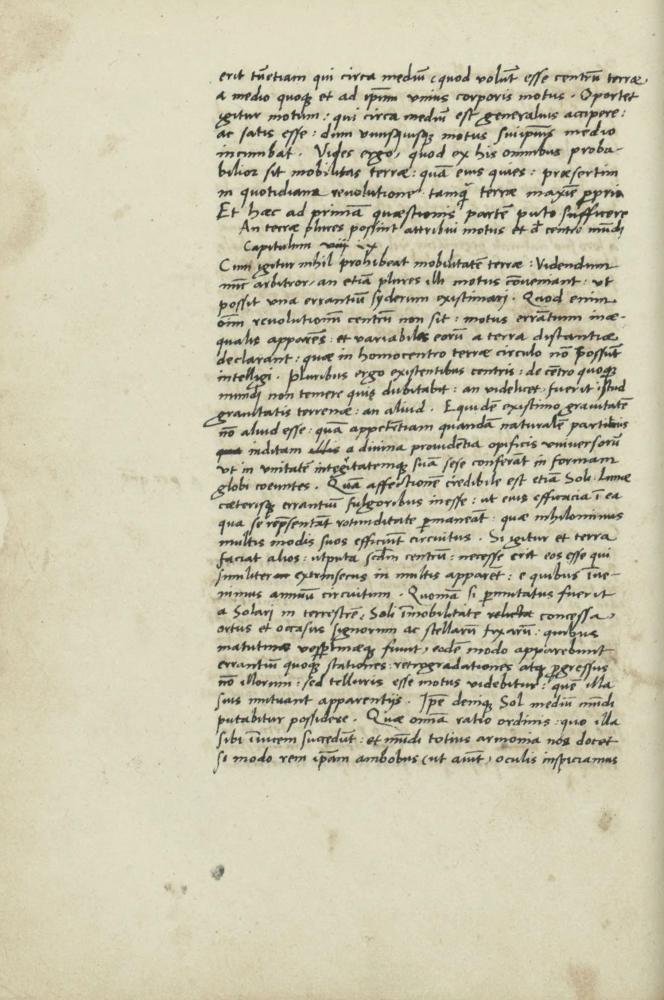 erit tũetiam qui circa mediũ (quod volũt esse centrũ terræ)
a medio quoqꝫ et ad ip̃m vnius corporis motus . Oportet
igitur motum : qui circa mediũ est generalius accipere :
ac satis esse : dum vnusquisqꝫ motus suiipsius medio
incumbat . Vides ergo, quod ex his omnibus proba-
bilior sit mobilitas terræ : quã eius quies : præsertim
in quotidiana reuolutione tamq̃ terræ maxime ꝓpria
Et hæc ad primã quæstionis partẽ puto sufficere
An terræ plures possint attribui motus et d̃ centro mũdi
Capitulum viii ix
Cum igitur nihil prohibeat mobilitatẽ terræ : Videndum
nũc arbitror : an etiã plures illi motus cõueniant : vt
possit vna errantiũ syderum existimarj . Quod enim
om̃m reuolutionũ centrũ non sit : motus errãtium inæ-
qualis apparẽs : et variabiles eorũ a terra distantiæ
declarant : quæ in homocentro terræ circulo nõ possũt
intelligi . Pluribus ergo existentibus centris : de cẽtro quoqꝫ
mundj non temere quis dubitabit : an videlicet fuerit istud
grauitatis terrenæ : an aliud . Equidẽ existimo grauitatẽ
nõ aliud esse : quã appetẽtiam quandã naturalẽ partibus
inditam a diuina prouidẽtia opificis vniuersorũ
vt in vnitatẽ integ̃itatemqꝫ suã sese conferãt in formam
globi coeuntes . Quã affectionẽ credibile est etiã Soli Lunæ
cæterisqꝫ errantiũ fulgoribus inesse : ut eius efficacia ĩ ea
qua se rep̃sentãt rotunditate ꝑmaneãt : quæ nihilominus
multis modis suos efficiũt circuitus . Si igitur et terra
faciat alios : utputa scd̃m centrũ : necesse erit eos esse qui
similiter extrinsecus in multis apparẽt : e quibus ĩue-
nimus annuũ circuitum . Quoniã si ꝑmutatus fuerit
a Solari in terrestrẽ, Soli ĩmobilitate concessa,
ortus et occasus signorum ac stellarũ fixarũ : quibus
matutinæ vesp̃tinæqꝫ fiunt, eodẽ modo apparebunt
errantiũ quoqꝫ stationes : retrogradationes atqꝫ ꝓgressus
nõ illorum : sed telluris esse motus videbitur : quẽ illa
suis mutuant apparentijs . Ip̃e deniqꝫ Sol mediũ mũdi
putabitur possidere . Quæ omnia ratio ordinis : quo illa
sibi ĩuicem succedũt : et mũdi totius armonia nos docet
si modo rem ip̃am ambobus (ut aiũt) oculis inspiciamus